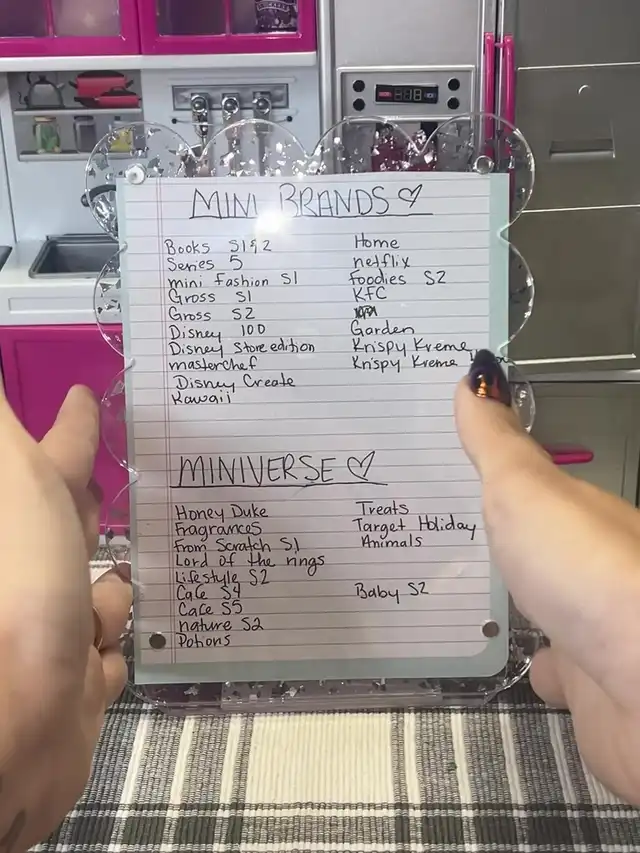 MINI BRANDS ♡
Books S1&2
Series 5
mini Fashion S1
Gross S1
Gross S2
Disney 100
Disney Store edition
masterchef
Disney Create
Kawaii
Home
netflix
Foodies S2
KFC
Garden
Krispy Kreme
Krispy Kreme
MINIVERSE ♡
Honey Duke
Fragrances
From Scratch S1
Lord of the rings
Lifestyle S2
Cafe S4
Cafe S5
nature S2
Potions
Treats
Target Holiday
Animals
Baby S2